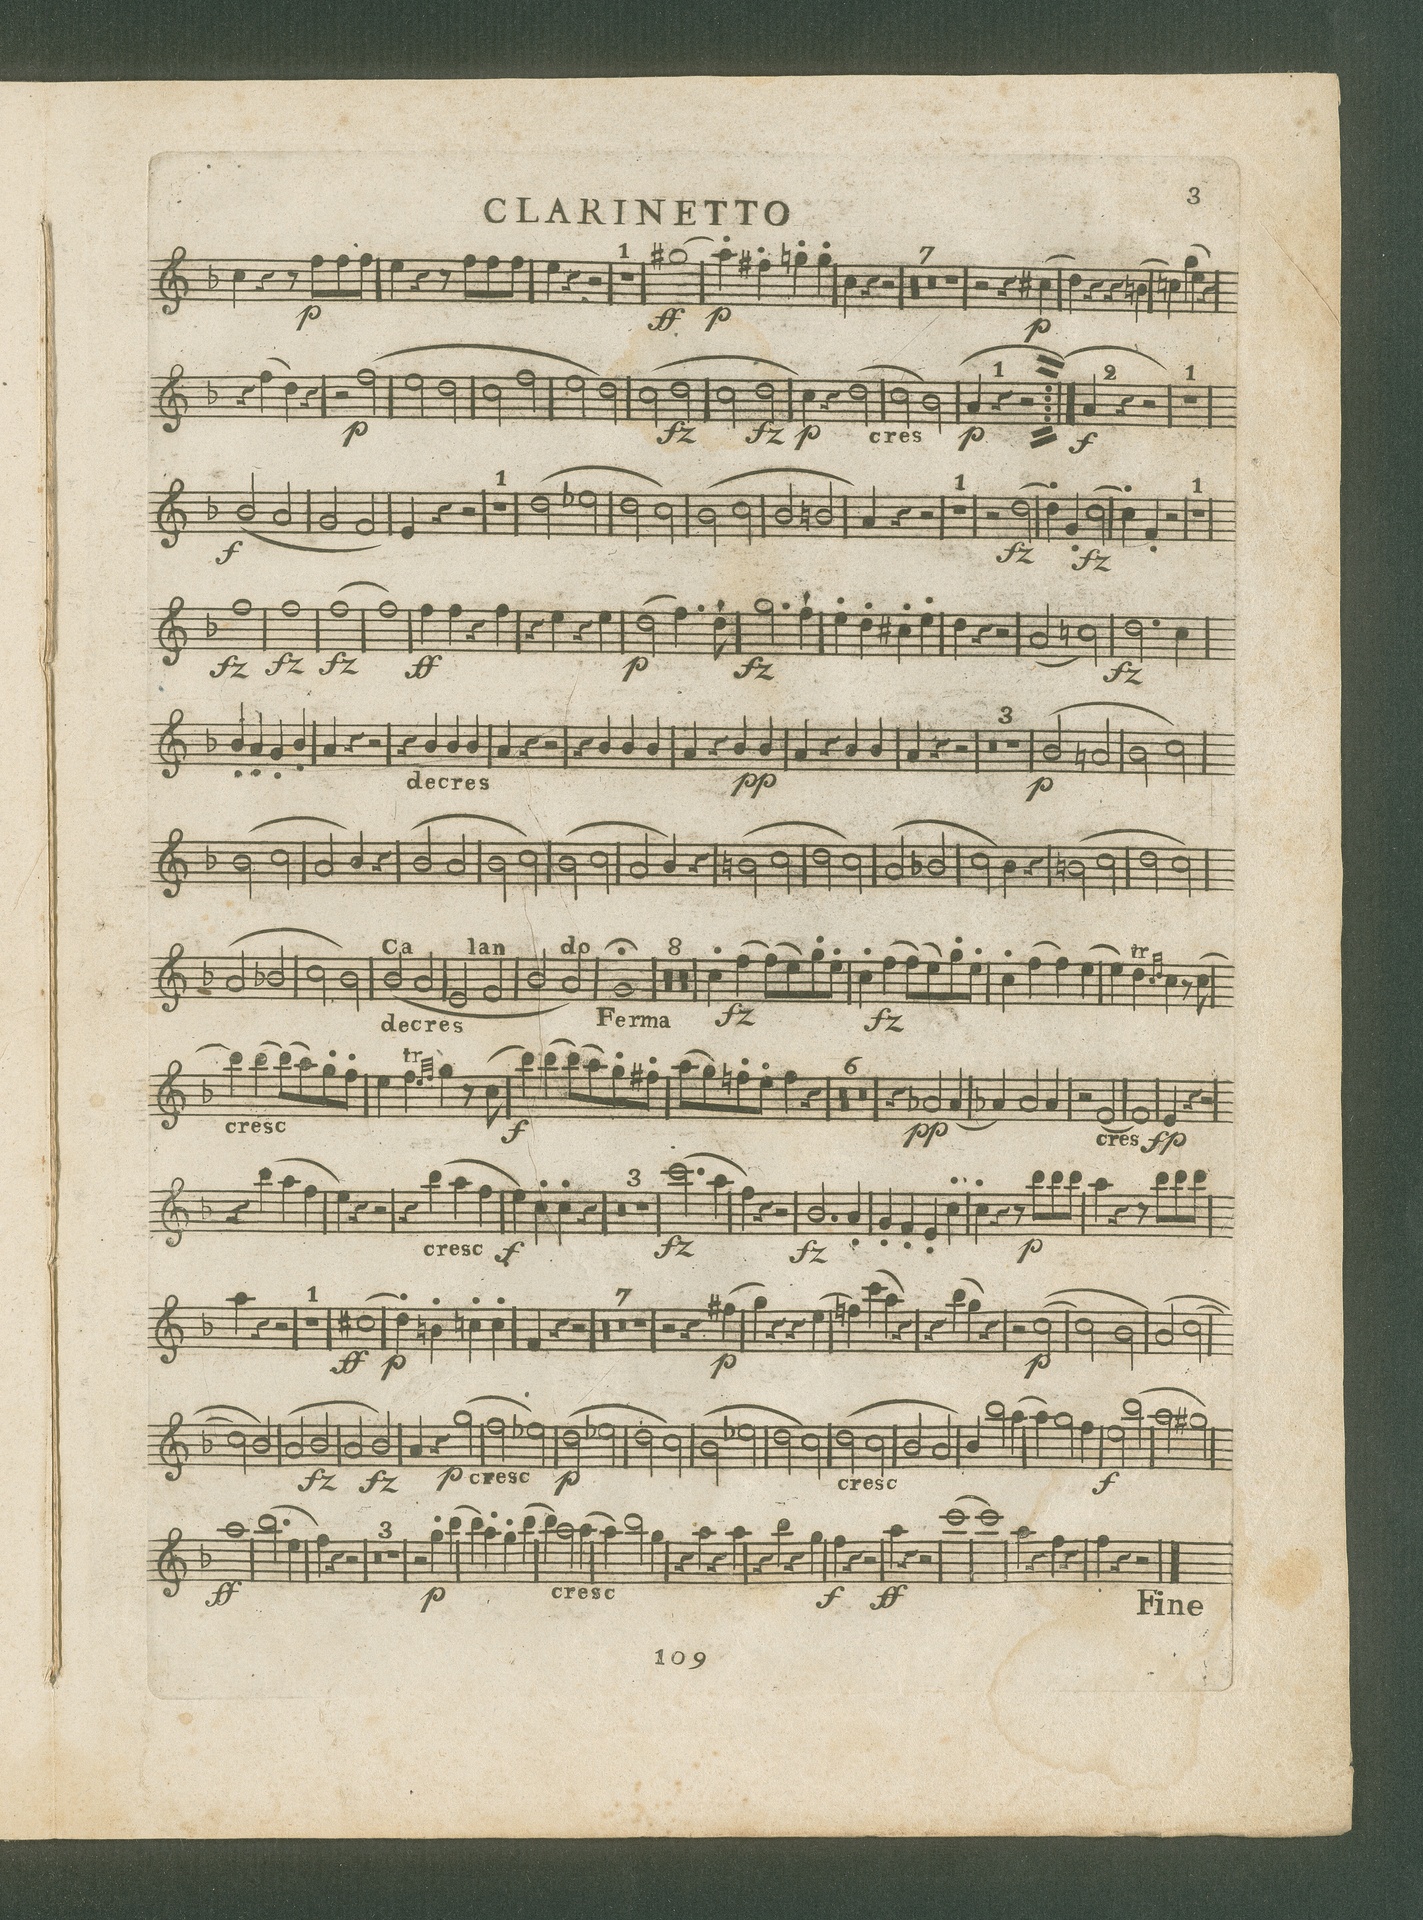 3
CLARINETTO
1 7
p ff p p
1 2 1
p fz fz p cres p f
1 1 1
f fz fz
fz fz fz ff p fz fz
3
decres pp p
Ca lan do 8 tr
decres Ferma fz fz
tr 6
cresc f pp cres fp
3
cresc f fz fz p
1 7
ff p p p
fz fz p cresc p cresc f
3
ff p cresc f ff
Fine
109